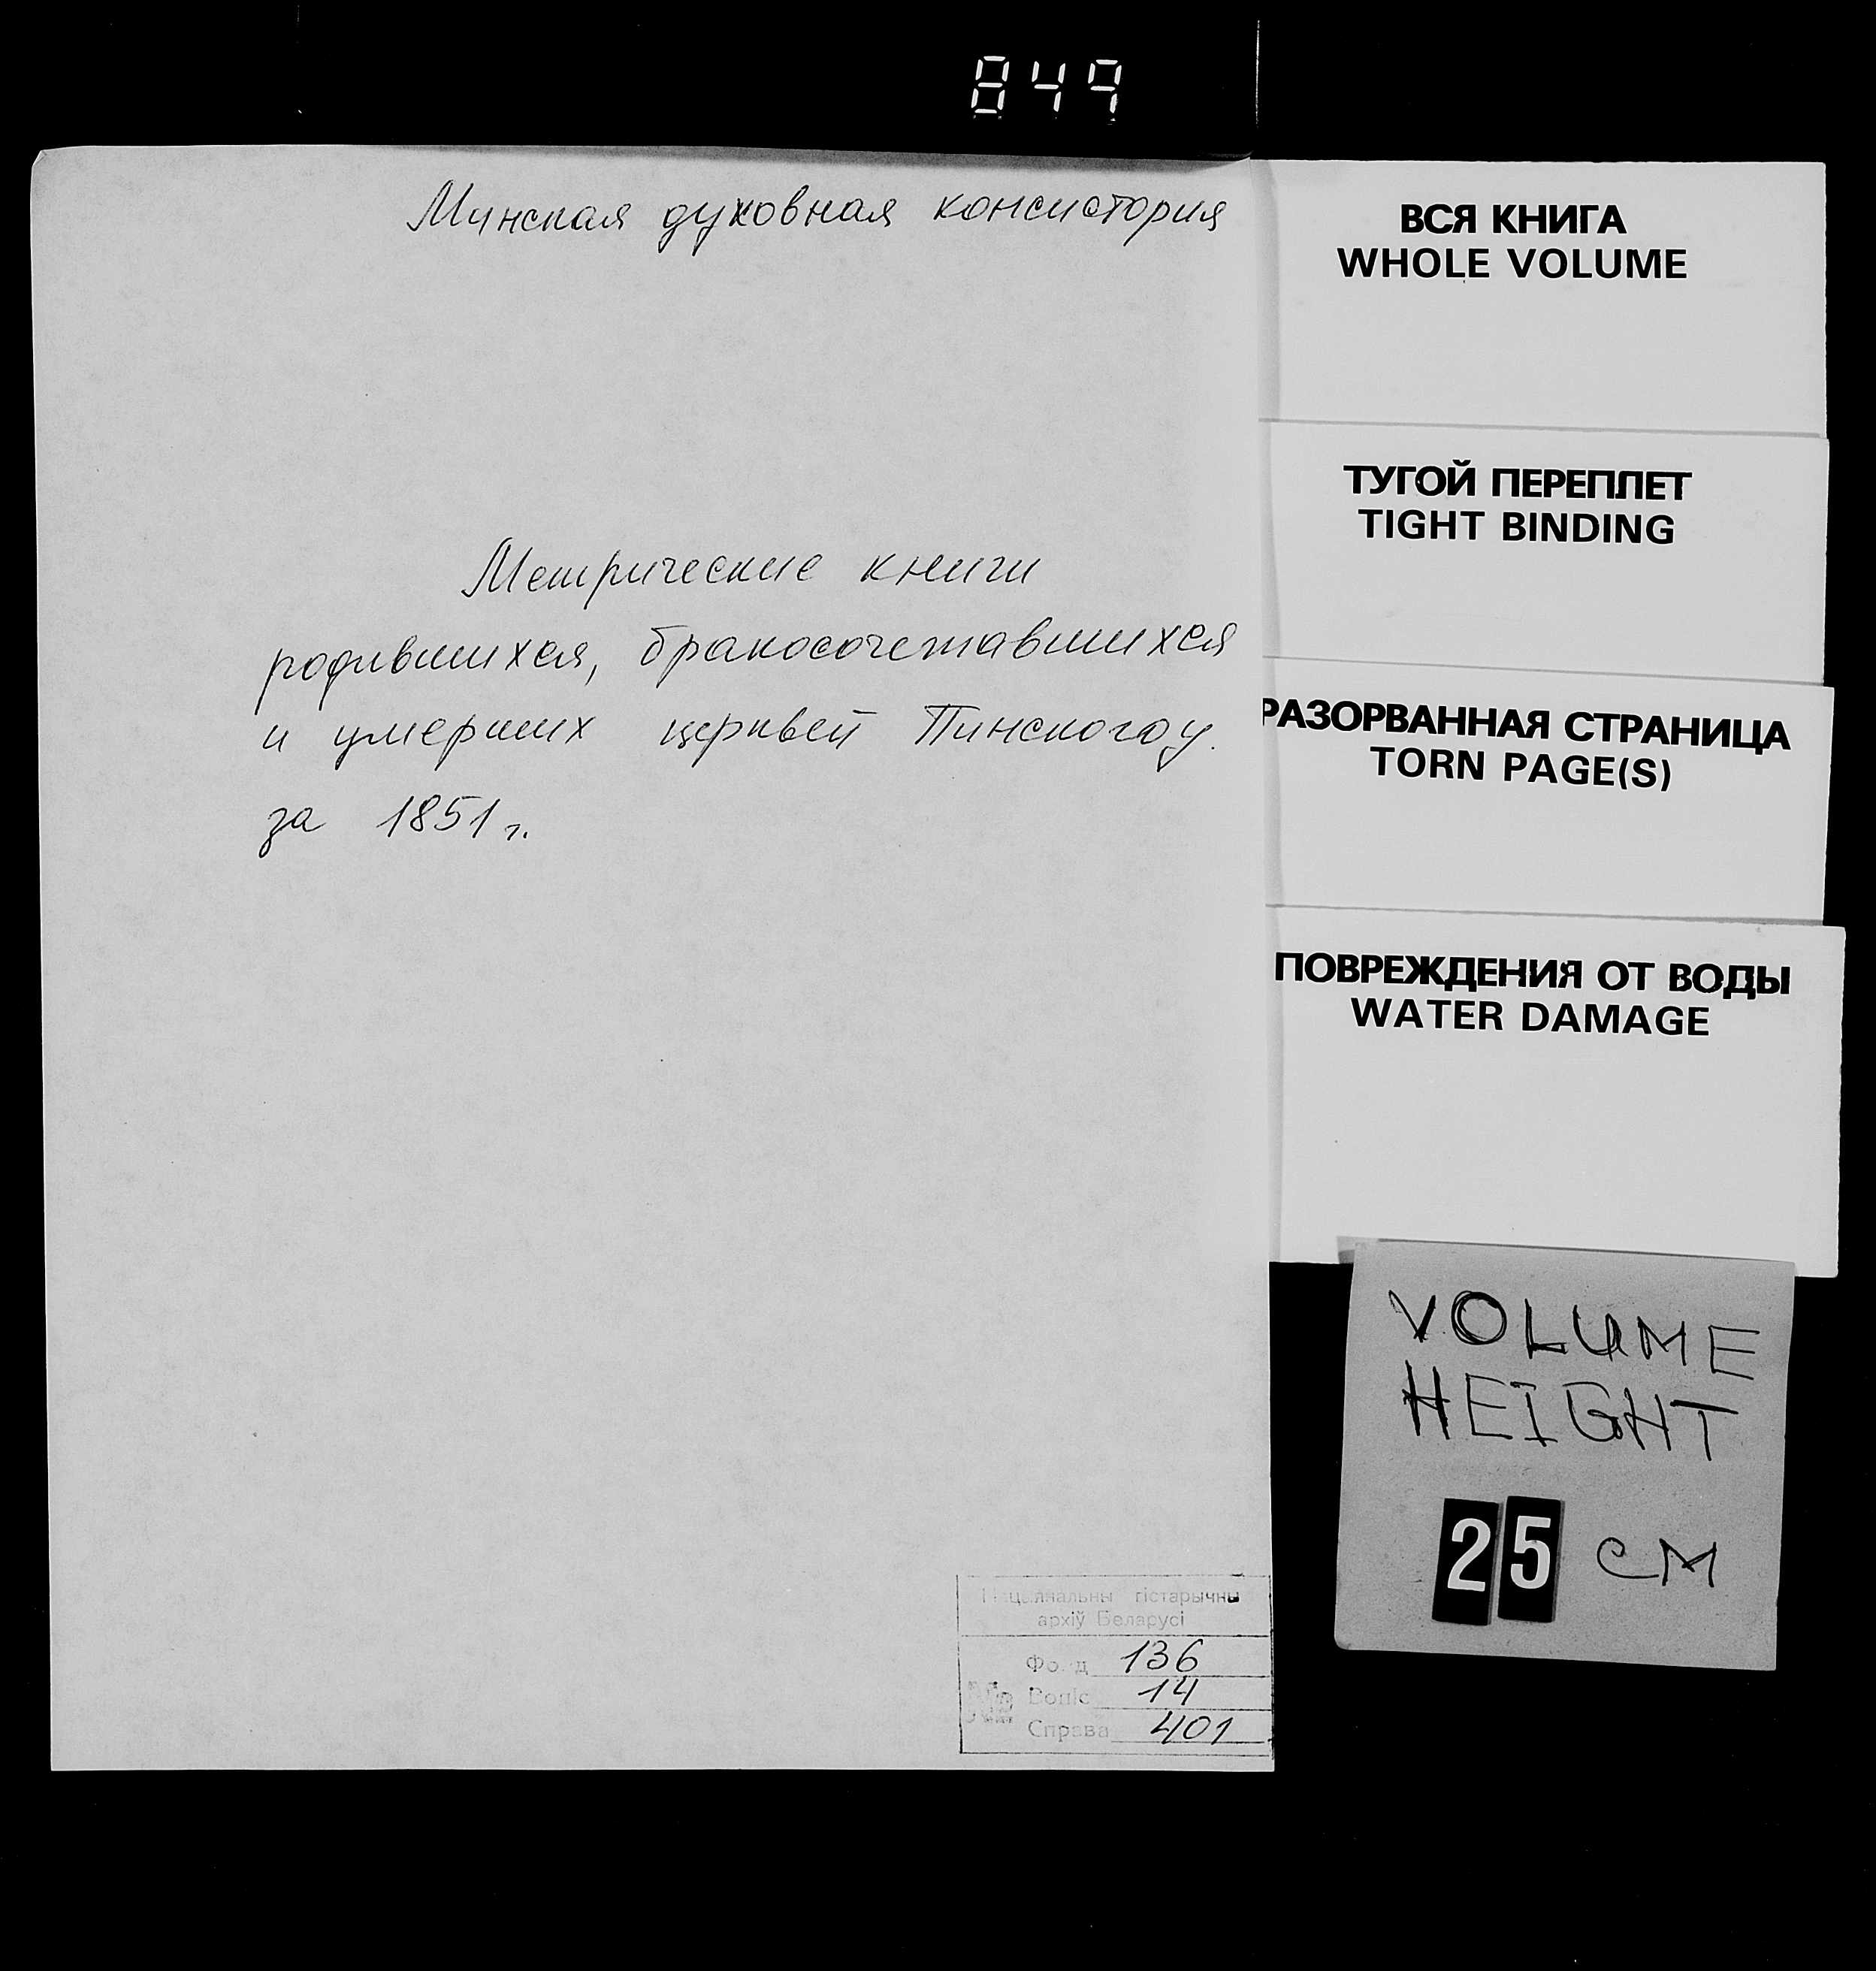 849
Минская духовная консистория
Метрические книги
родившихся, бракосочетавшихся
и умерших церквей Пинского у.
за 1851 г.
Нацыянальны гістарычны
архіў Беларусі
Фонд 136
Вопіс 14
№ Справа 401
ВСЯ КНИГА
WHOLE VOLUME
ТУГОЙ ПЕРЕПЛЕТ
TIGHT BINDING
РАЗОРВАННАЯ СТРАНИЦА
TORN PAGE(S)
ПОВРЕЖДЕНИЯ ОТ ВОДЫ
WATER DAMAGE
VOLUME
HEIGHT
25 CM